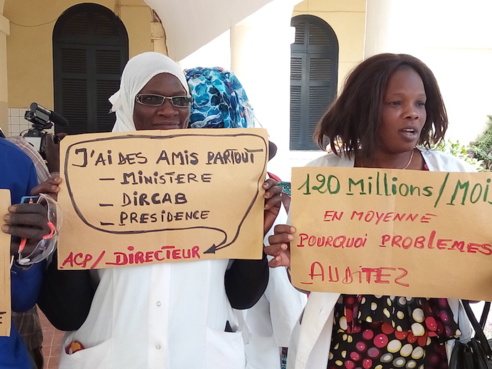 J'AI DES AMIS PARTOUT
– MINISTERE
– DIRCAB
– PRESIDENCE
ACP/ DIRECTEUR
120 MILLIONS/MOIS
EN MOYENNE
POURQUOI PROBLEMES
AUDITEZ